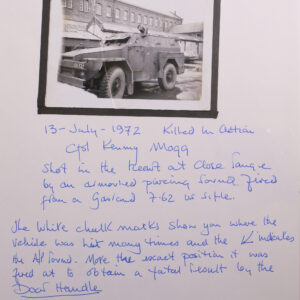 13-July-1972 Killed In Action
Cpl Kenny Mogg
Shot in the Heart at Close Range
by an armoured piercing round fired
from a Garand 7-62 as rifle.
The White chalk marks show you where the
vehicle was hit many times and the indicates
the AP round. Note the exact position it was
fired at to obtain a fatal result by the
Door Handle